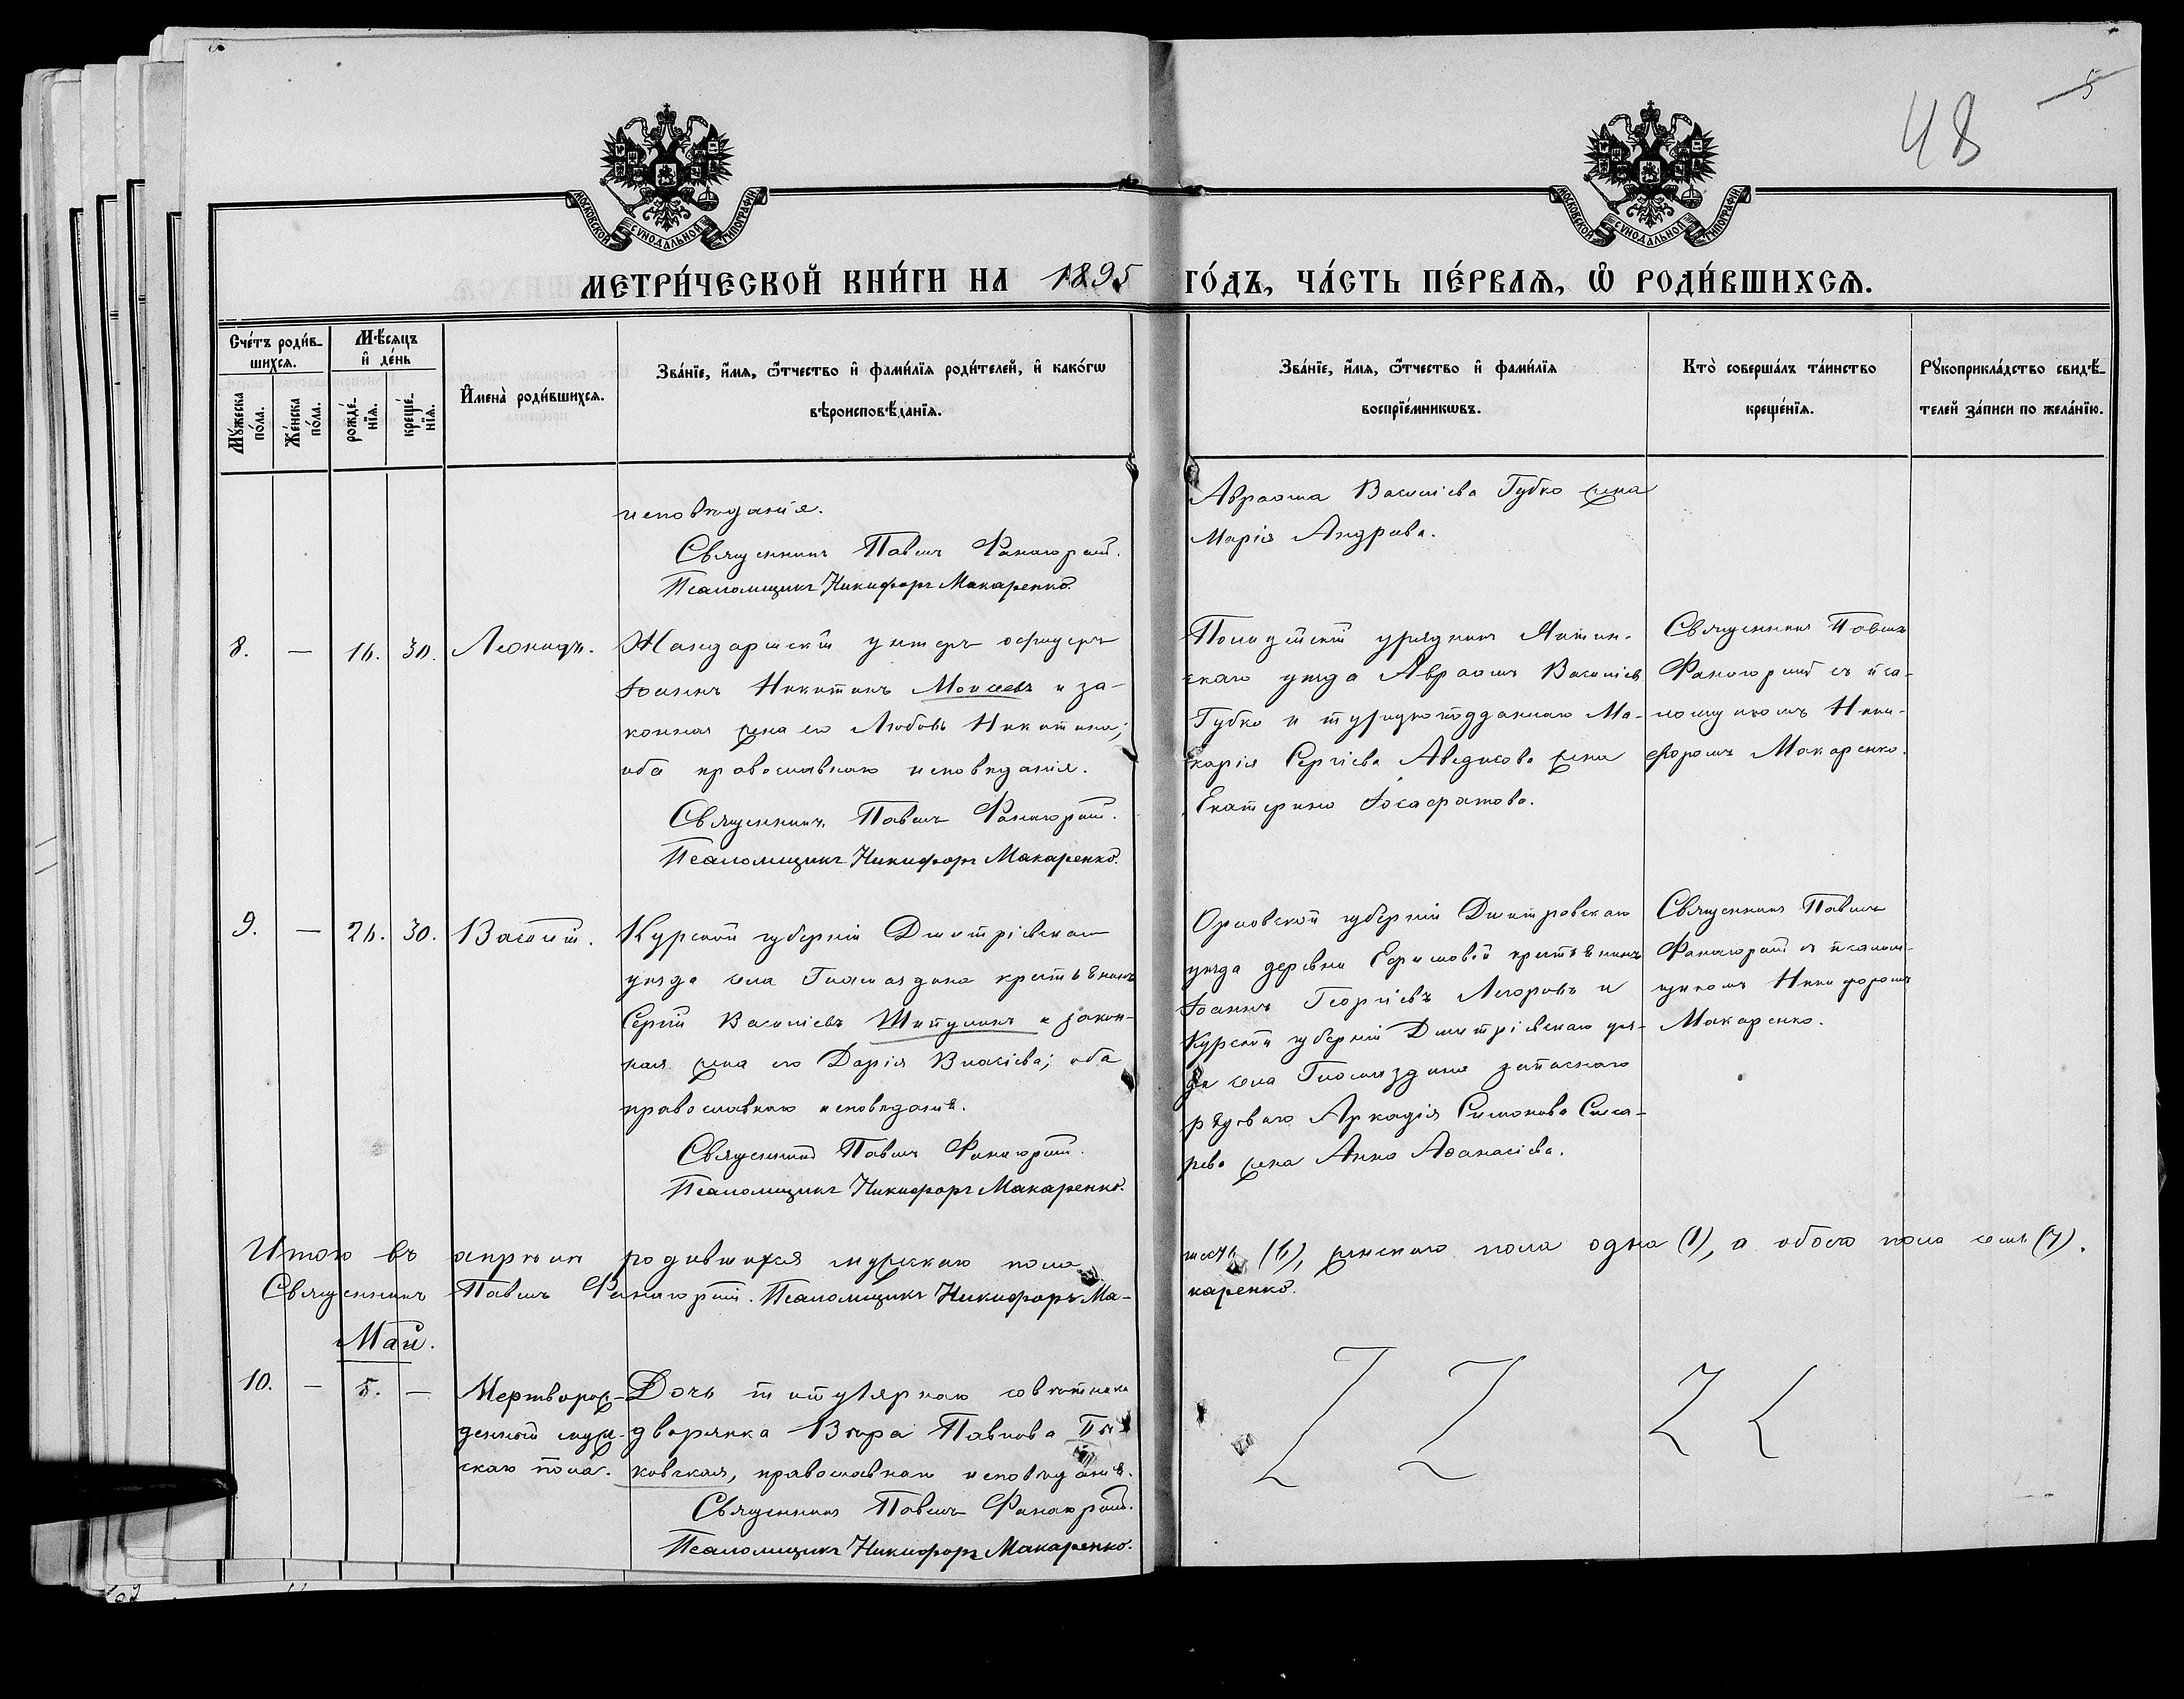 48
5
МОСКОВСКОЙ СѴНОДАЛЬНОЙ ТИПОГРАФІИ
МОСКОВСКОЙ СѴНОДАЛЬНОЙ ТИПОГРАФІИ
МЕТРИ́ЧЕСКОЙ КНИ́ГИ НА 1895 ГО́ДЪ, ЧА́СТЬ ПЕ́РВАѦ, Ѡ҆ РОДИ́ВШИХСѦ.
Сче́тъ роди́в-
шихсѧ.
Мꙋ́жеска по́ла.
Же́нска по́ла.
Мѣ́сѧцъ
и҆ де́нь
рожде́-
нїѧ.
креще́-
нїѧ.
И҆мена̀ роди́вшихсѧ.
Зва́нїе, и҆́мѧ, ѻ҆́тчество и҆ фами́лїѧ роди́телей, и҆ како́гѡ
вѣроисповѣ́данїѧ.
Зва́нїе, и҆́мѧ, ѻ҆́тчество и҆ фами́лїѧ
воспрїе́мникѡвъ.
Кто̀ соверша́лъ та́инство
креще́нїѧ.
Рꙋкоприкла́дство свидѣ́-
телей за́писи по жела́нїю.
исповѣданія.
Священникъ Павелъ Фанагорій.
Псаломщикъ Никифоръ Макаренко.
Авраама Василіева Губко жена
Марія Андреева.
8. — 16. 30. Леонидъ.
Жандармскій унтеръ офицеръ
Іоаннъ Никитинъ Моисеевъ и за-
конная жена его Любовь Никитина;
оба православнаго исповѣданія.
Священникъ Павелъ Фанагорій.
Псаломщикъ Никифоръ Макаренко.
Полицейскій урядникъ
скаго уѣзда Авраамъ Василіевъ
Губко и турецкоподданнаго Ма-
карія Сергіева Аведисова жена
Екатерина Іосафатова.
Священникъ Павелъ
Фанагорій съ пса-
ломщикомъ Ники-
форомъ Макаренко.
9. — 26. 30. Василій.
Курской губерніи Дмитріевскаго
уѣзда села Гламаздина крестьянинъ
Сергій Василіевъ Шипулинъ и закон-
ная жена его Дарія Власіева; оба
православнаго исповѣданія.
Священникъ Павелъ Фанагорій.
Псаломщикъ Никифоръ Макаренко.
Орловской губерніи Дмитровскаго
уѣзда деревни крестьянинъ
Іоаннъ Георгіевъ и
Курской губерніи Дмитріевскаго уѣз-
да села Гламаздина запаснаго
рядоваго Аркадія Симонова
жена Анна Аѳанасіева.
Священникъ Павелъ
Фанагорій съ псалом-
щикомъ Никифоромъ
Макаренко.
Итого въ апрѣлѣ родившихся мужскаго пола шесть (6), женскаго пола одна (1), а обоего пола семь (7).
Священникъ Павелъ Фанагорій. Псаломщикъ Никифоръ Ма-
каренко.
Май.
10. — 5. —
Мертворож-
денный муж-
скаго пола.
Дочь титулярнаго совѣтника
дворянка Вѣра Павлова
ковская, православнаго исповѣданія.
Священникъ Павелъ Фанагорій.
Псаломщикъ Никифоръ Макаренко.